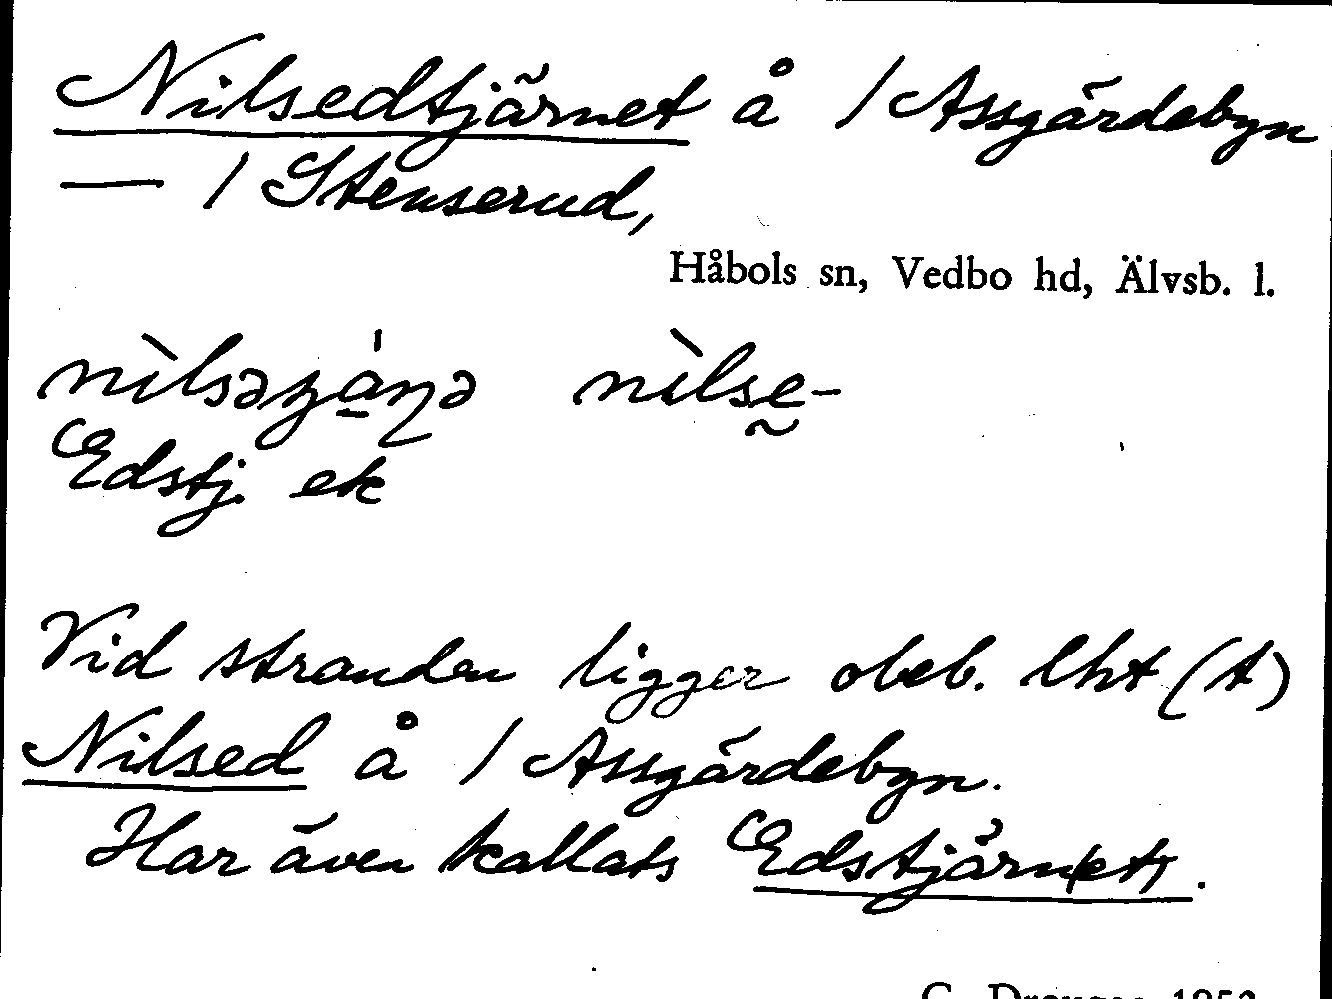 Nilsedtjärnet å / Assgärdebyn
— / Stenserud,
Håbols sn, Vedbo hd, Älvsb. l.
nìlsəʒa̠ɳə nìlsḛ-
Edstj. ek
Vid stranden ligger obeb. lht (t)
Nilsed å / Assgärdebyn.
Har även kallats Edstjärn(et).